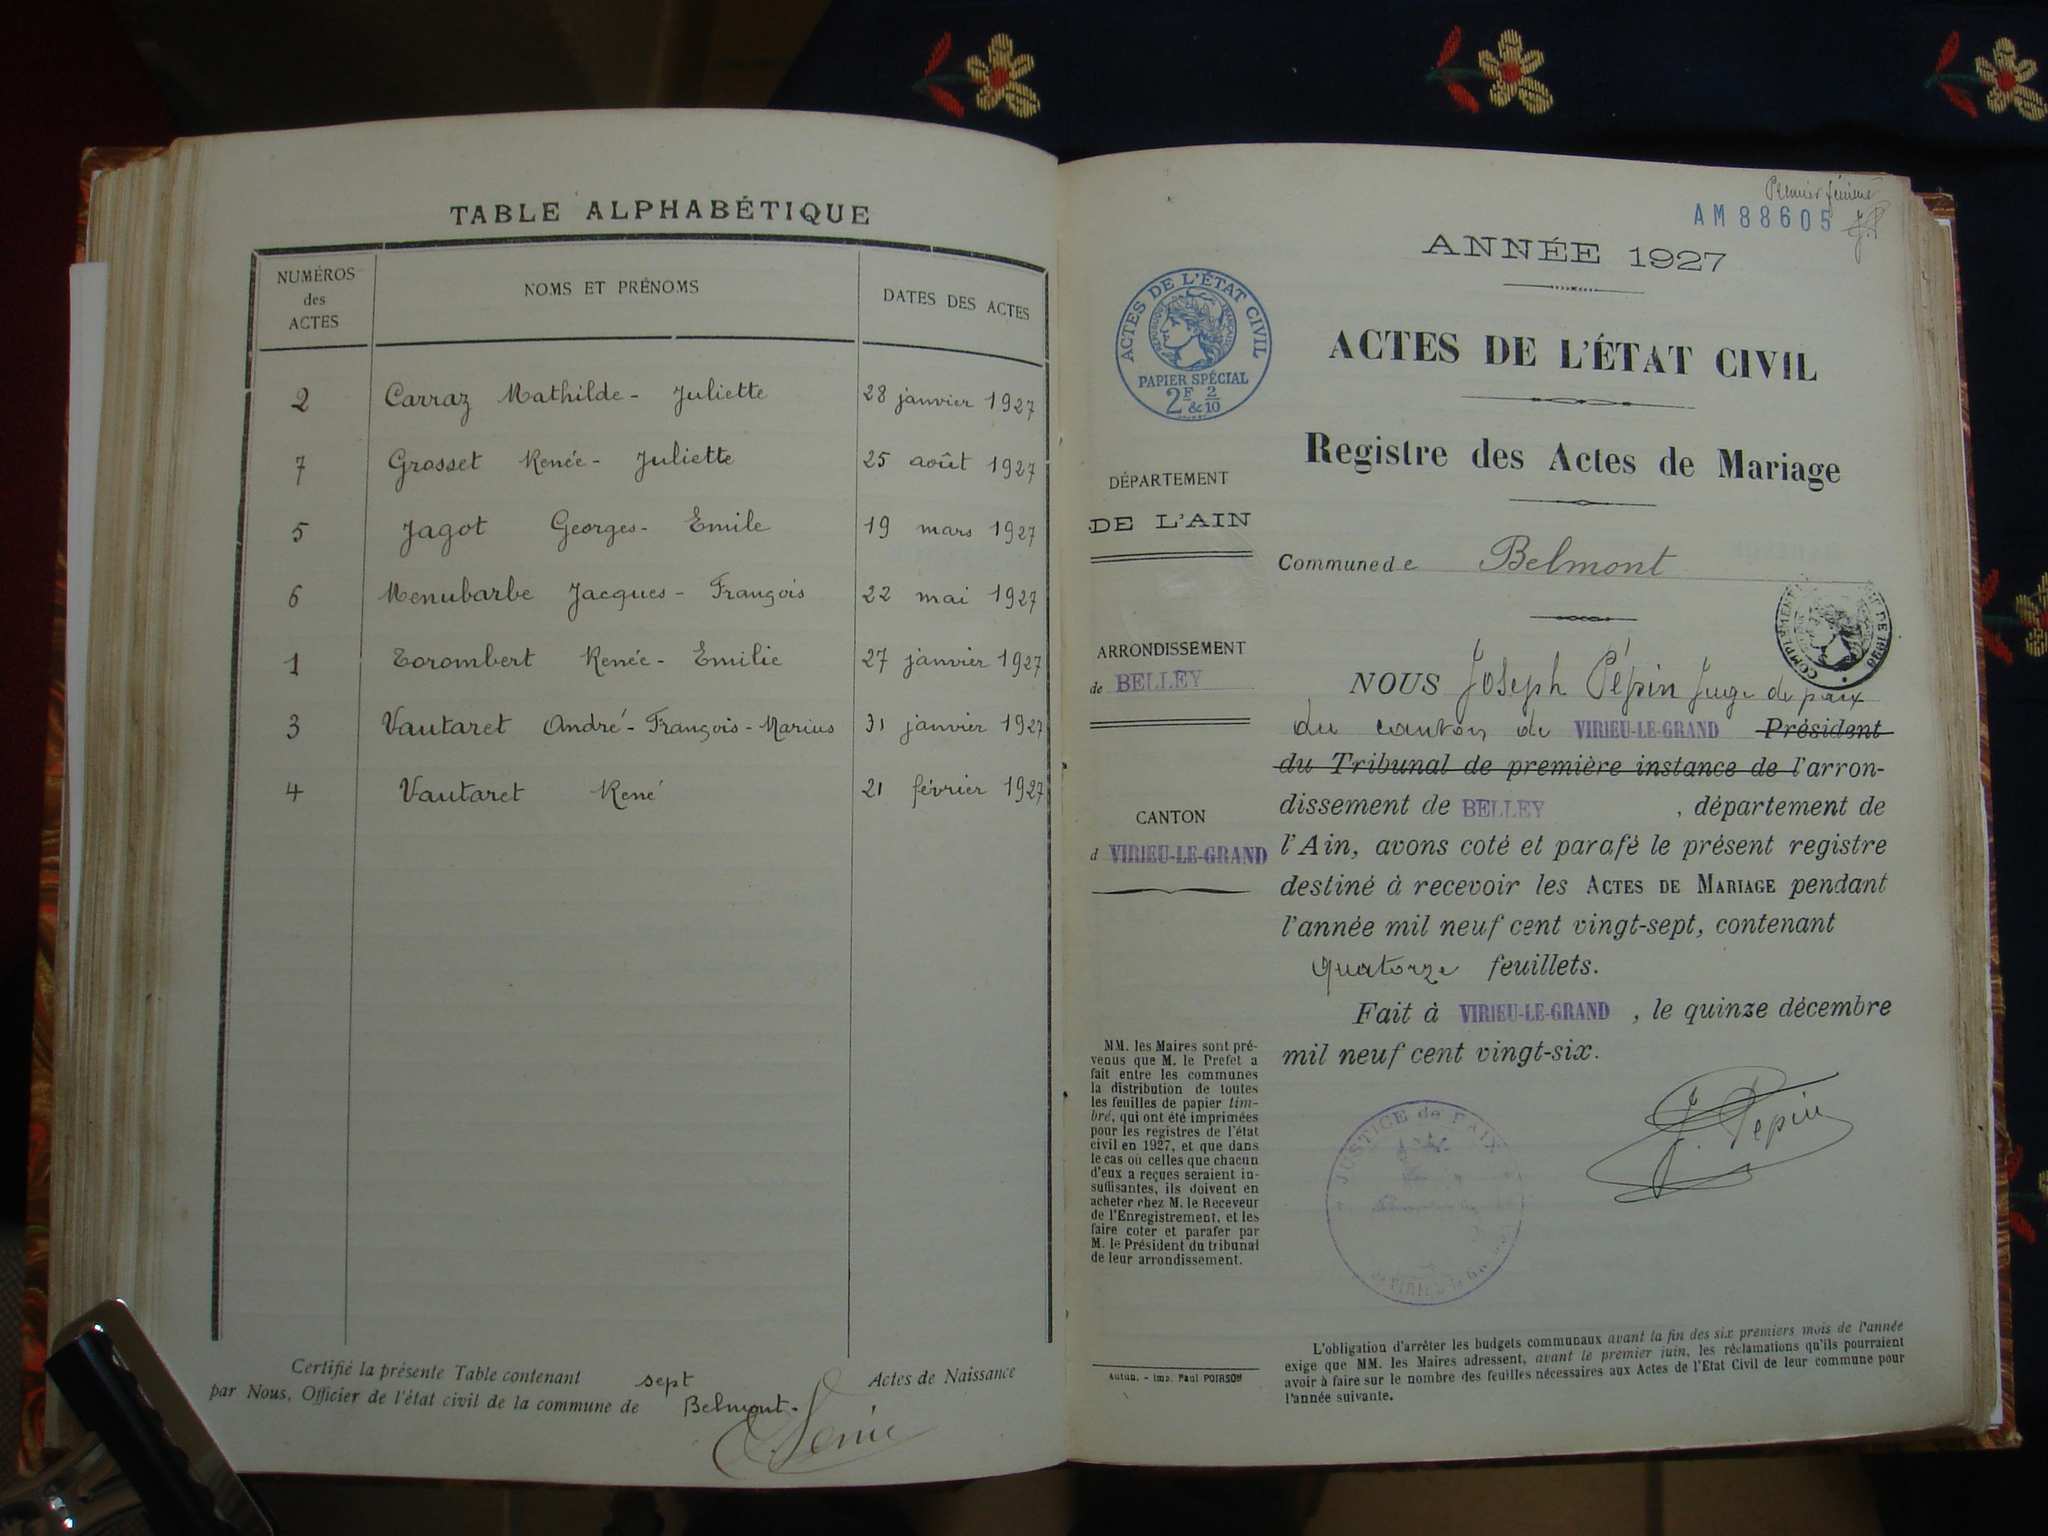 TABLE ALPHABÉTIQUE
NUMÉROS des ACTES
NOMS ET PRÉNOMS
DATES DES ACTES
2 Carraz Mathilde - Juliette 28 janvier 1927
7 Grosset Renée - Juliette 25 août 1927
5 Jagot Georges - Emile 19 mars 1927
6 Menubarbe Jacques - François 22 mai 1927
1 Torombert Renée - Emilie 27 janvier 1927
3 Vautaret André - François - Marius 31 janvier 1927
4 Vautaret René 21 février 1927
Certifié la présente Table contenant sept Actes de Naissance
par Nous, Officier de l'état civil de la commune de Belmont.
Premier
AM 88605
ANNÉE 1927
ACTES DE L'ÉTAT CIVIL
RÉPUBLIQUE FRANÇAISE
PAPIER SPÉCIAL
2F & 2/10
ACTES DE L'ÉTAT CIVIL
Registre des Actes de Mariage
DÉPARTEMENT
DE L'AIN
Commune de Belmont
ARRONDISSEMENT
de BELLEY
CANTON
d VIRIEU-LE-GRAND
NOUS Joseph Pépin Juge de paix
du canton de VIRIEU-LE-GRAND Président
du Tribunal de première instance de l'arron-
dissement de BELLEY , département de
l'Ain, avons coté et parafé le présent registre
destiné à recevoir les ACTES DE MARIAGE pendant
l'année mil neuf cent vingt-sept, contenant
quatorze feuillets.
Fait à VIRIEU-LE-GRAND , le quinze décembre
mil neuf cent vingt-six.
J. Pepin
JUSTICE de PAIX
MM. les Maires sont pré-
venus que M. le Prefet a
fait entre les communes
la distribution de toutes
les feuilles de papier tim-
bré, qui ont été imprimées
pour les registres de l'état
civil en 1927, et que dans
le cas où celles que chacun
d'eux a reçues seraient in-
suffisantes, ils doivent en
acheter chez M. le Receveur
de l'Enregistrement, et les
faire coter et parafer par
M. le Président du tribunal
de leur arrondissement.
Autun. - Imp. Paul POIRSON
L'obligation d'arrêter les budgets communaux avant la fin des six premiers mois de l'année
exige que MM. les Maires adressent, avant le premier juin, les réclamations qu'ils pourraient
avoir à faire sur le nombre des feuilles nécessaires aux Actes de l'Etat Civil de leur commune pour
l'année suivante.